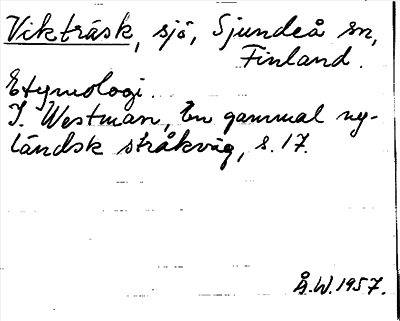 Vikträsk, sjö, Sjundeå sn,
Finland.
Etymologi.
I. Westman, En gammal ny-
ländsk stråkväg, s. 17.
Å.W. 1957.